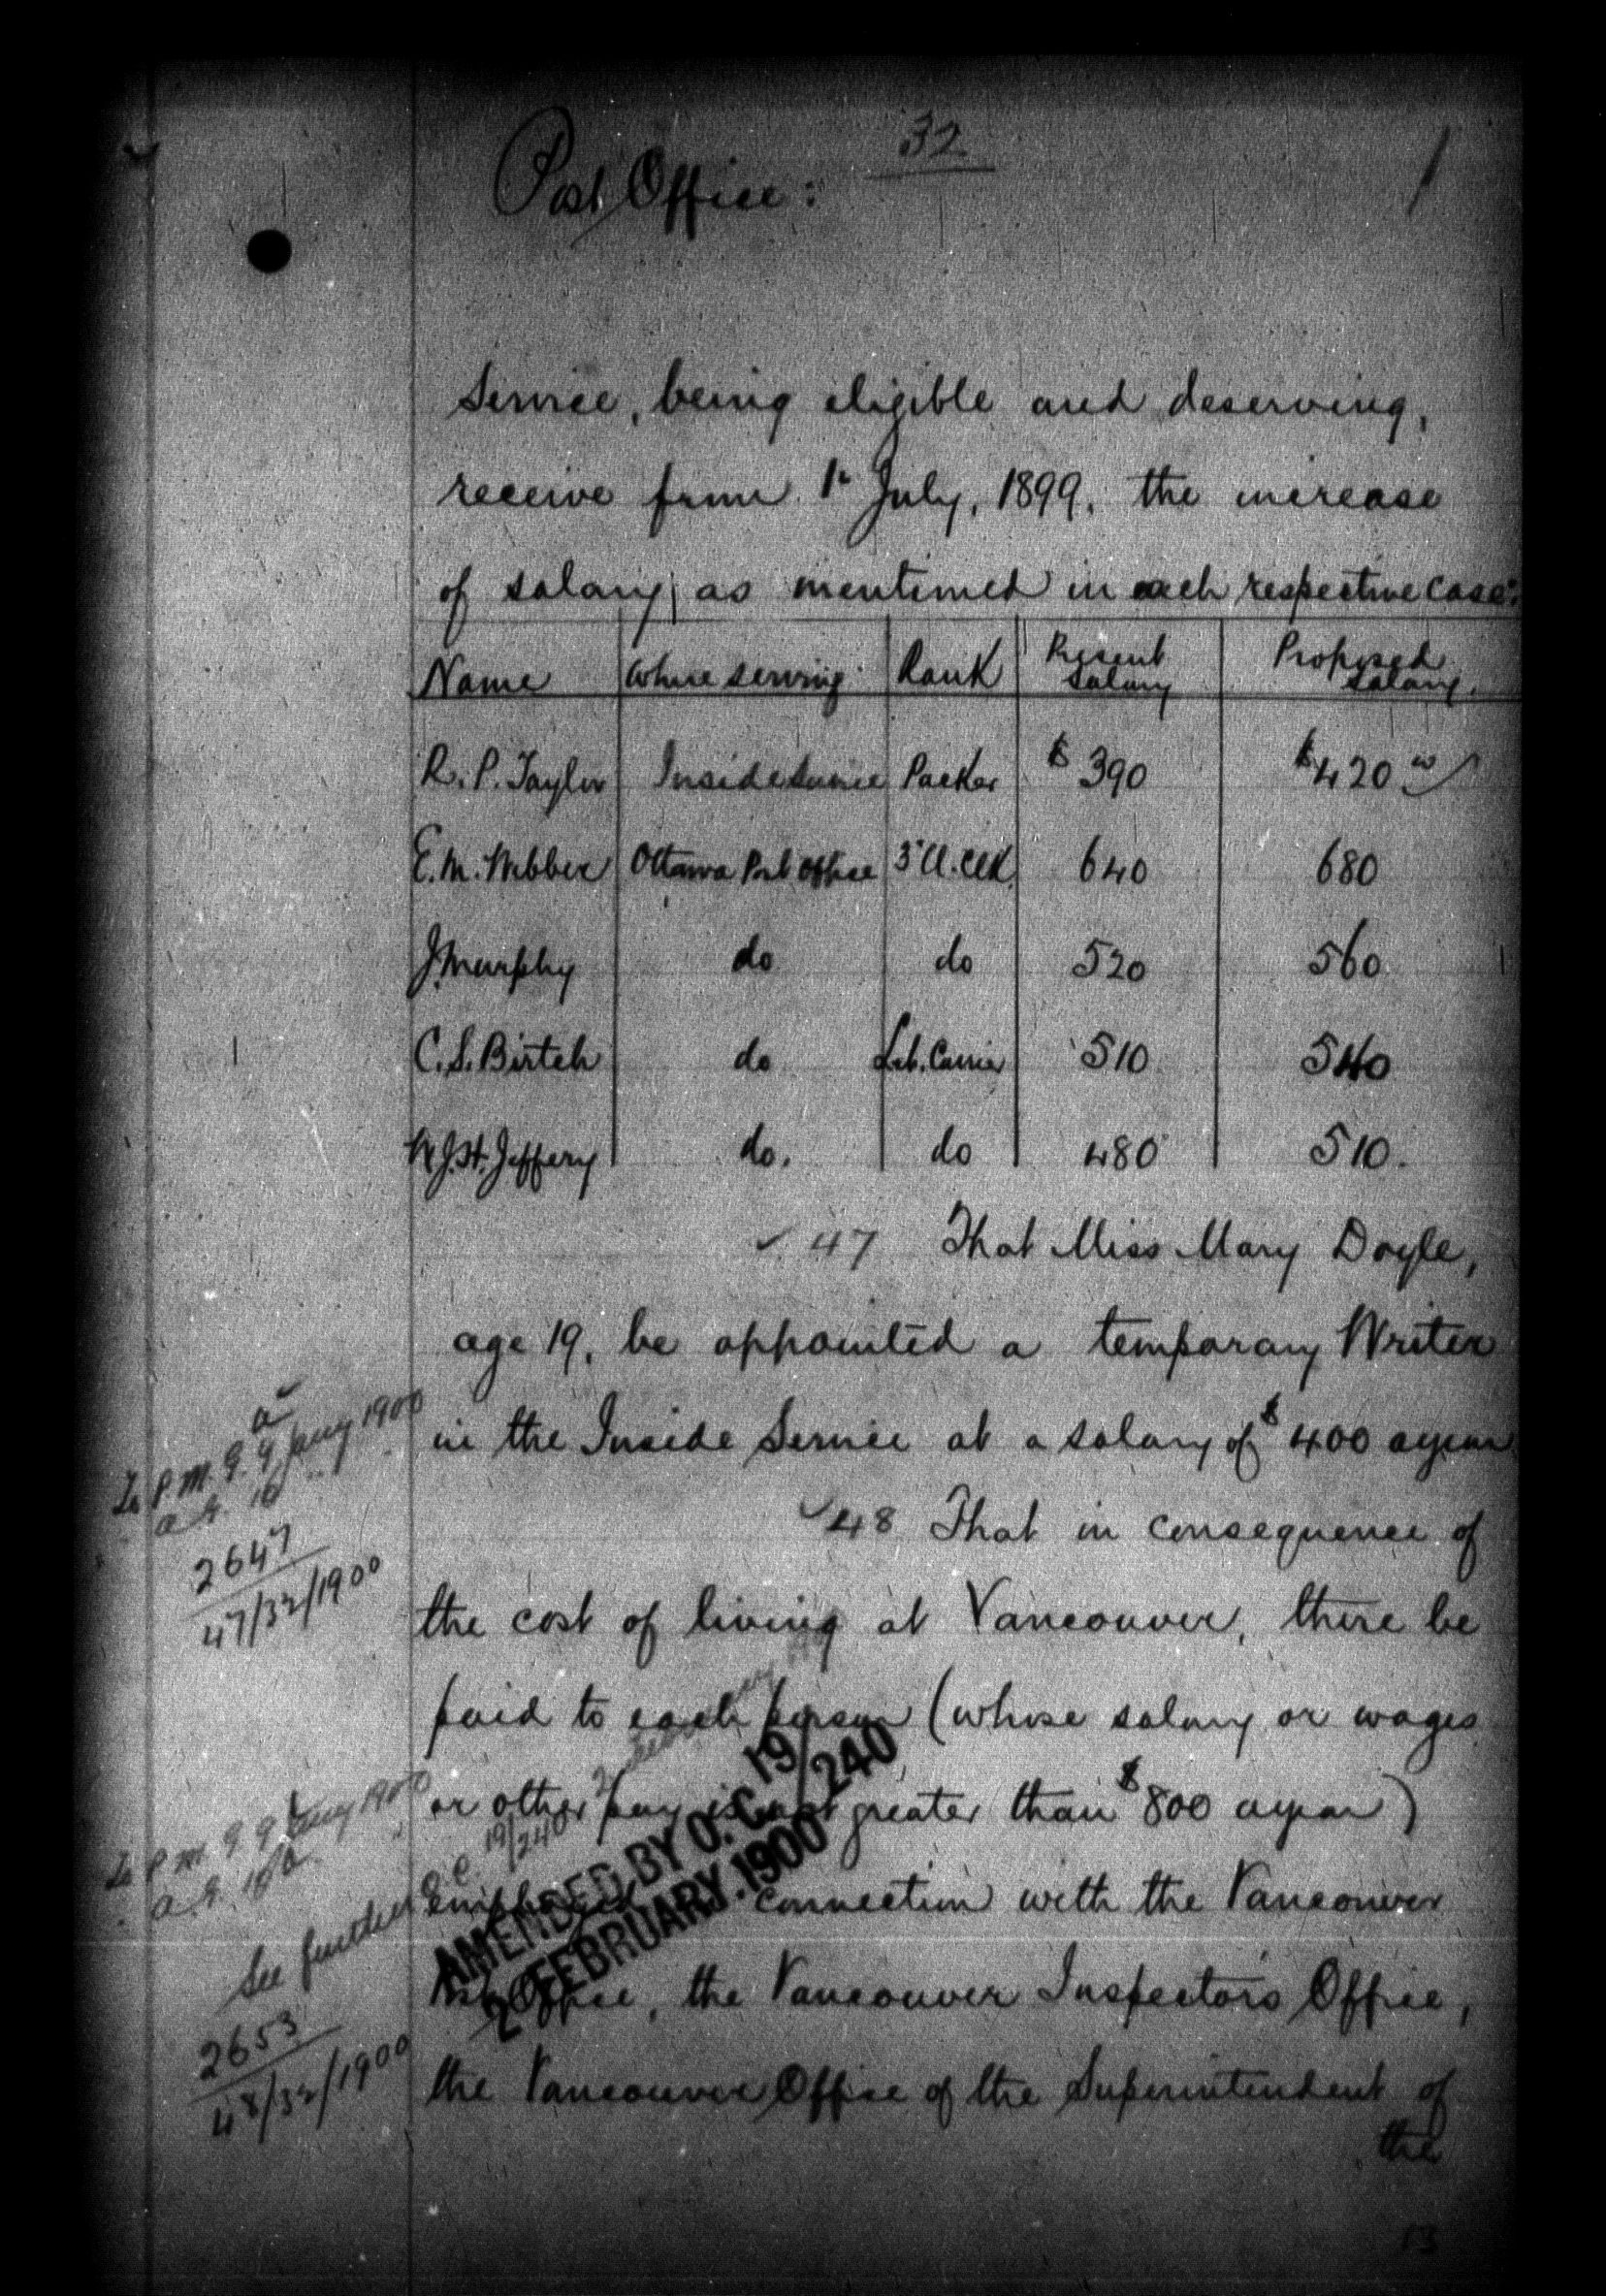 32
Post Office:
Service, being eligible and deserving,
receive from 1st July, 1899, the increase
of salary, as mentioned in each respective case:
Name Where serving Rank Present Salary Proposed Salary
R. P. Taylor Inside Service Packer $390 $420
E. M. Webber Ottawa Post Office 3" Cl. Clk. 640 680
J. Murphy do do 520 560
C. S. Birtch do Let. Carrier 510 540
W. J. H. Jeffery do. do 480 510.
47 That Miss Mary Doyle,
age 19, be appointed a temporary Writer
in the Inside Service at a salary of $400 a year
To P. M. G. 9 Jany 1900
A. G. 16
2647
47/32/1900
48 That in consequence of
the cost of living at Vancouver, there be
paid to each person (whose salary or wages
or other pay is not greater than $800 a year)
employed in connection with the Vancouver
Post Office, the Vancouver Inspector's Office,
the Vancouver Office of the Superintendent of
the
To P. M. G. 9 Jany 1900
A. G. 16
See further O.C. 19/240 2 February
2653
48/32/1900
AMENDED BY O. C. 19/240
2 FEBRUARY. 1900
13